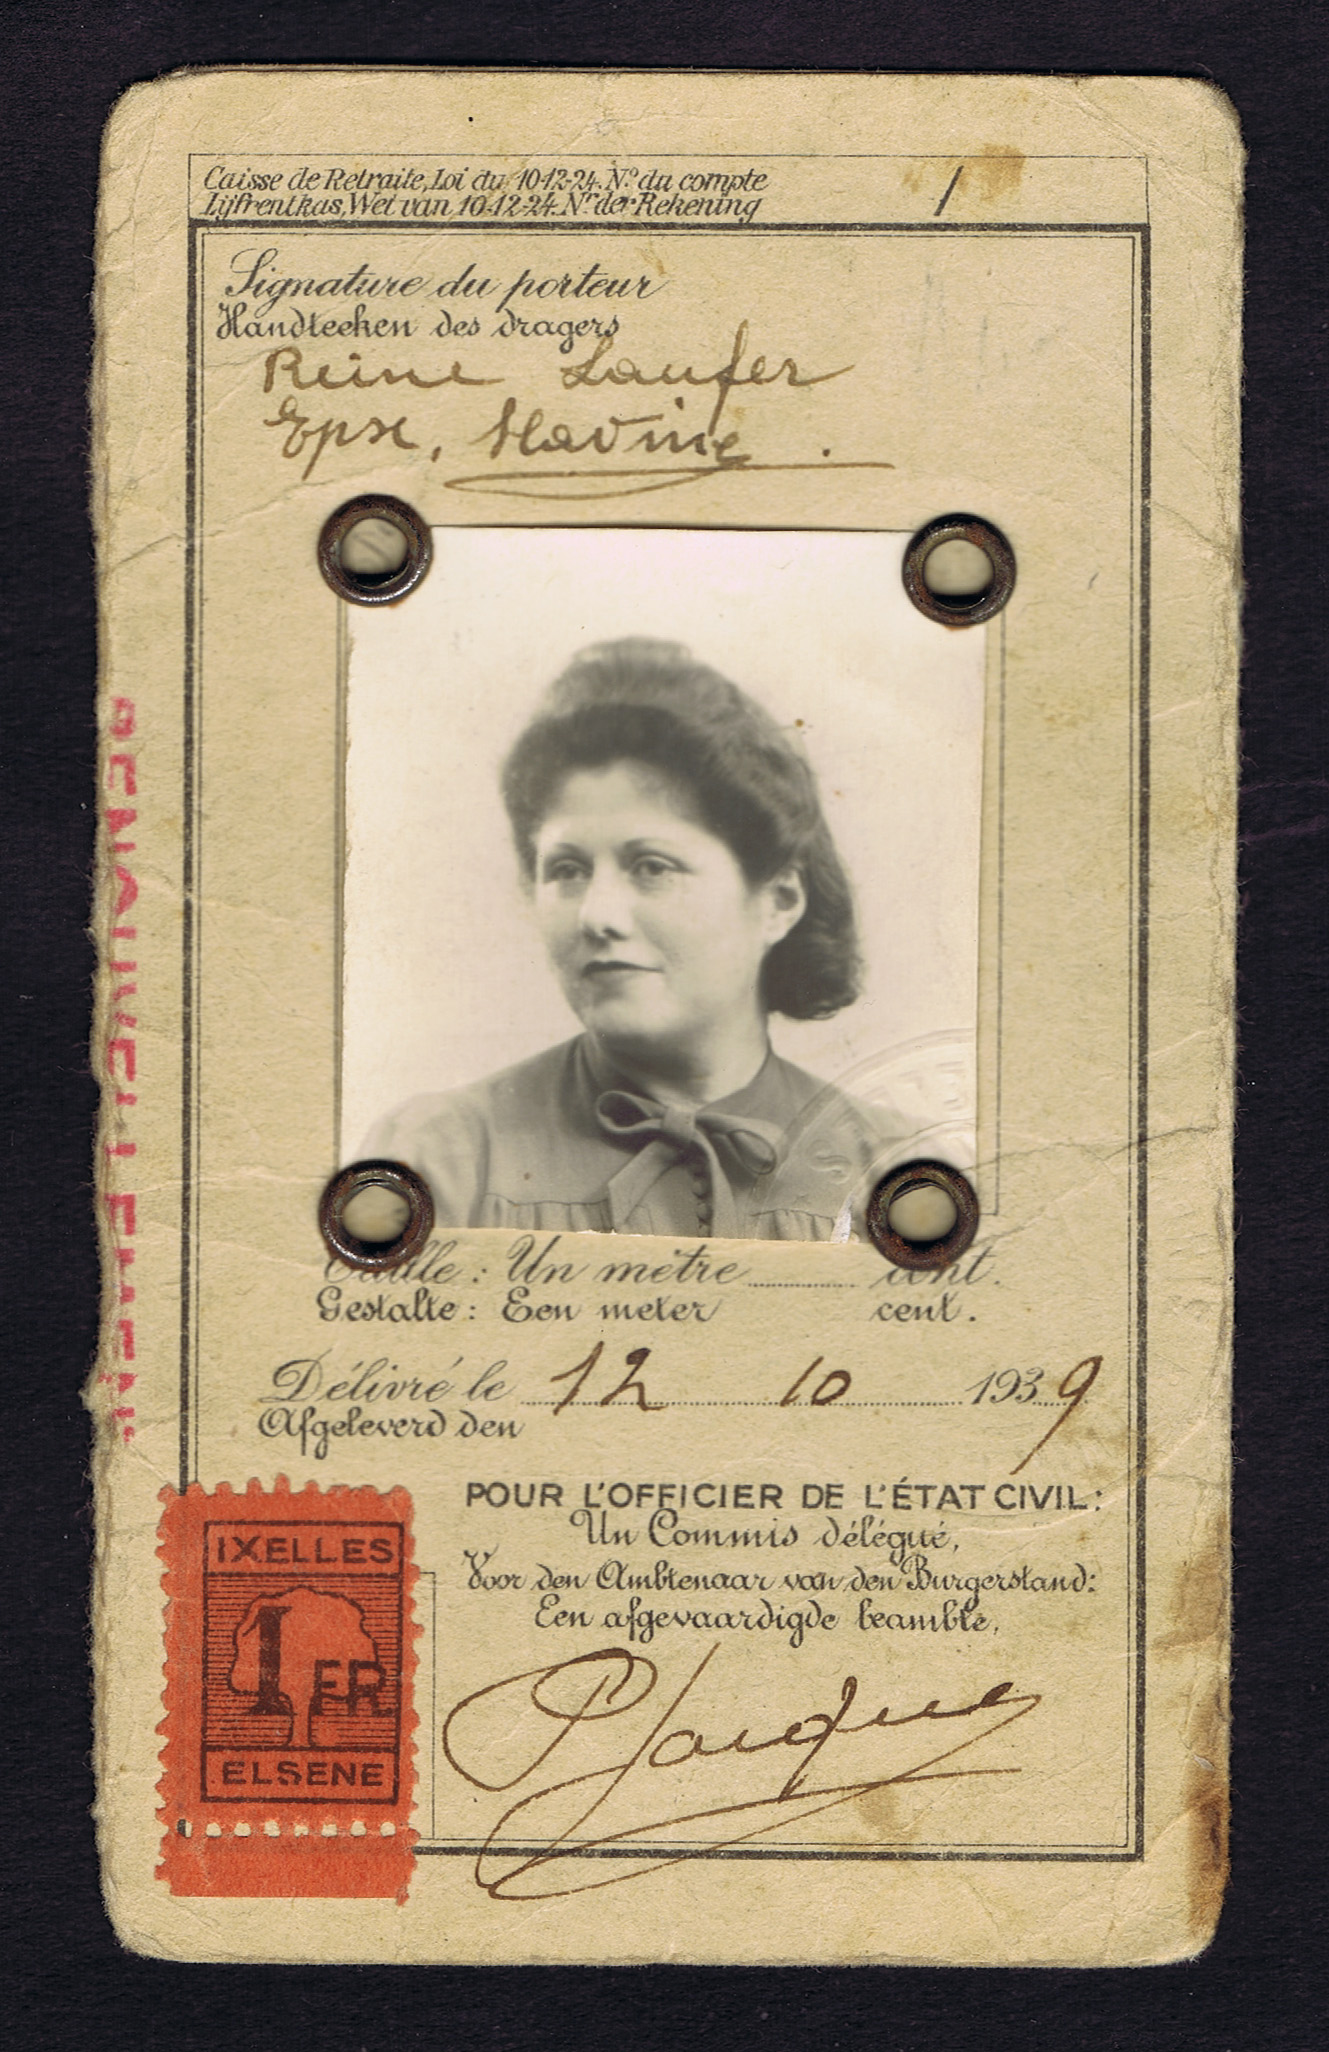 Caisse de Retraite, Loi du 10-12-24. Nº du compte
Lijfrentkas, Wet van 10-12-24. Nr der Rekening
1
Signature du porteur
Handteeken des dragers
Reine Laufer
Epse,
Taille : Un mètre cent.
Gestalte : Een meter cent.
Délivré le 12 10 1939
Afgeleverd den
POUR L'OFFICIER DE L'ÉTAT CIVIL :
Un Commis délégué,
Voor den Ambtenaar van den Burgerstand:
Een afgevaardigde beambte,
P Jacque
IXELLES
1 FR
ELSENE